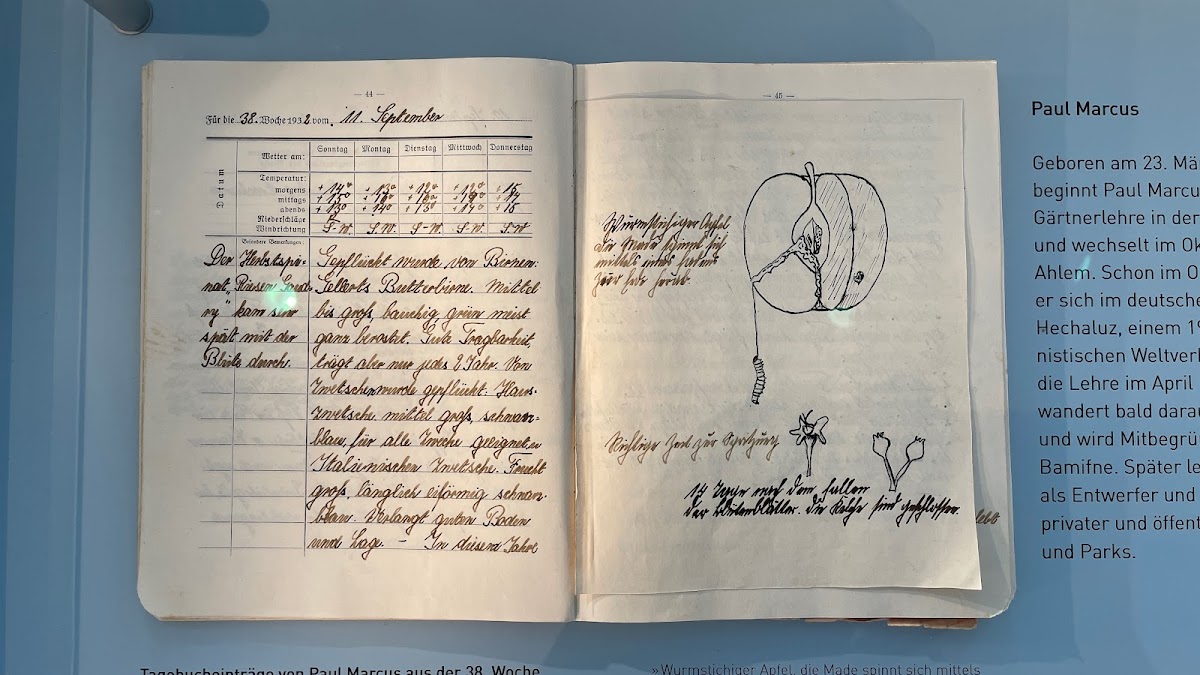 — 44 —
Für die 38. Woche 1932 vom 11. September
Datum
Wetter am: Sonntag Montag Dienstag Mittwoch Donnerstag
Temperatur:
morgens + 14° + 13° + 12° + 12° + 15
mittags
abends
Niederschläge
Windrichtung S.-W. S.W. S.-W. S.W. S.W
Besondere Bemerkungen:
Der Herbstspi-
nat „Riesen
ry" kam sehr
spät mit der
Blüte durch.
Gepflückt wurde von Birnen:
Gellerts Butterbirne. Mittel
bis groß, bauchig, grün meist
ganz berostet. Gute Tragbarkeit
trägt aber nur jedes 2 Jahr. Von
Zwetschen wurde gepflückt: Haus-
zwetsche mittel groß, schwarz-
blau, für alle Zwecke geeignet.
Italienischen Zwetsche. Frucht
groß, länglich eiförmig schwarz-
blau. Verlangt guten Boden
und Lage. – In diesem Jahre
— 45 —
Wurmstichiger Apfel
die Made spinnt sich
mittels eines Fadens
zur Erde herab.
Richtige Zeit zur Spritzung
14 Tage nach dem fallen
der Blütenblätter. Die Kelche sind geschlossen.
Paul Marcus
Geboren am 23. Mä
beginnt Paul Marcu
Gärtnerlehre in der
und wechselt im Ok
Ahlem. Schon im O
er sich im deutsche
Hechaluz, einem 19
nistischen Weltverb
die Lehre im April
wandert bald dara
und wird Mitbegrü
Bamifne. Später le
als Entwerfer und
privater und öffent
und Parks.
Tagebucheinträge von Paul Marcus aus der 38. Woche
»Wurmstichiger Apfel, die Made spinnt sich mittels